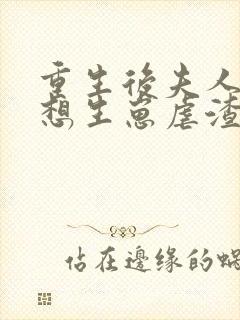 重生後夫人
想生崽虐渣
佔在邊缘的蝸